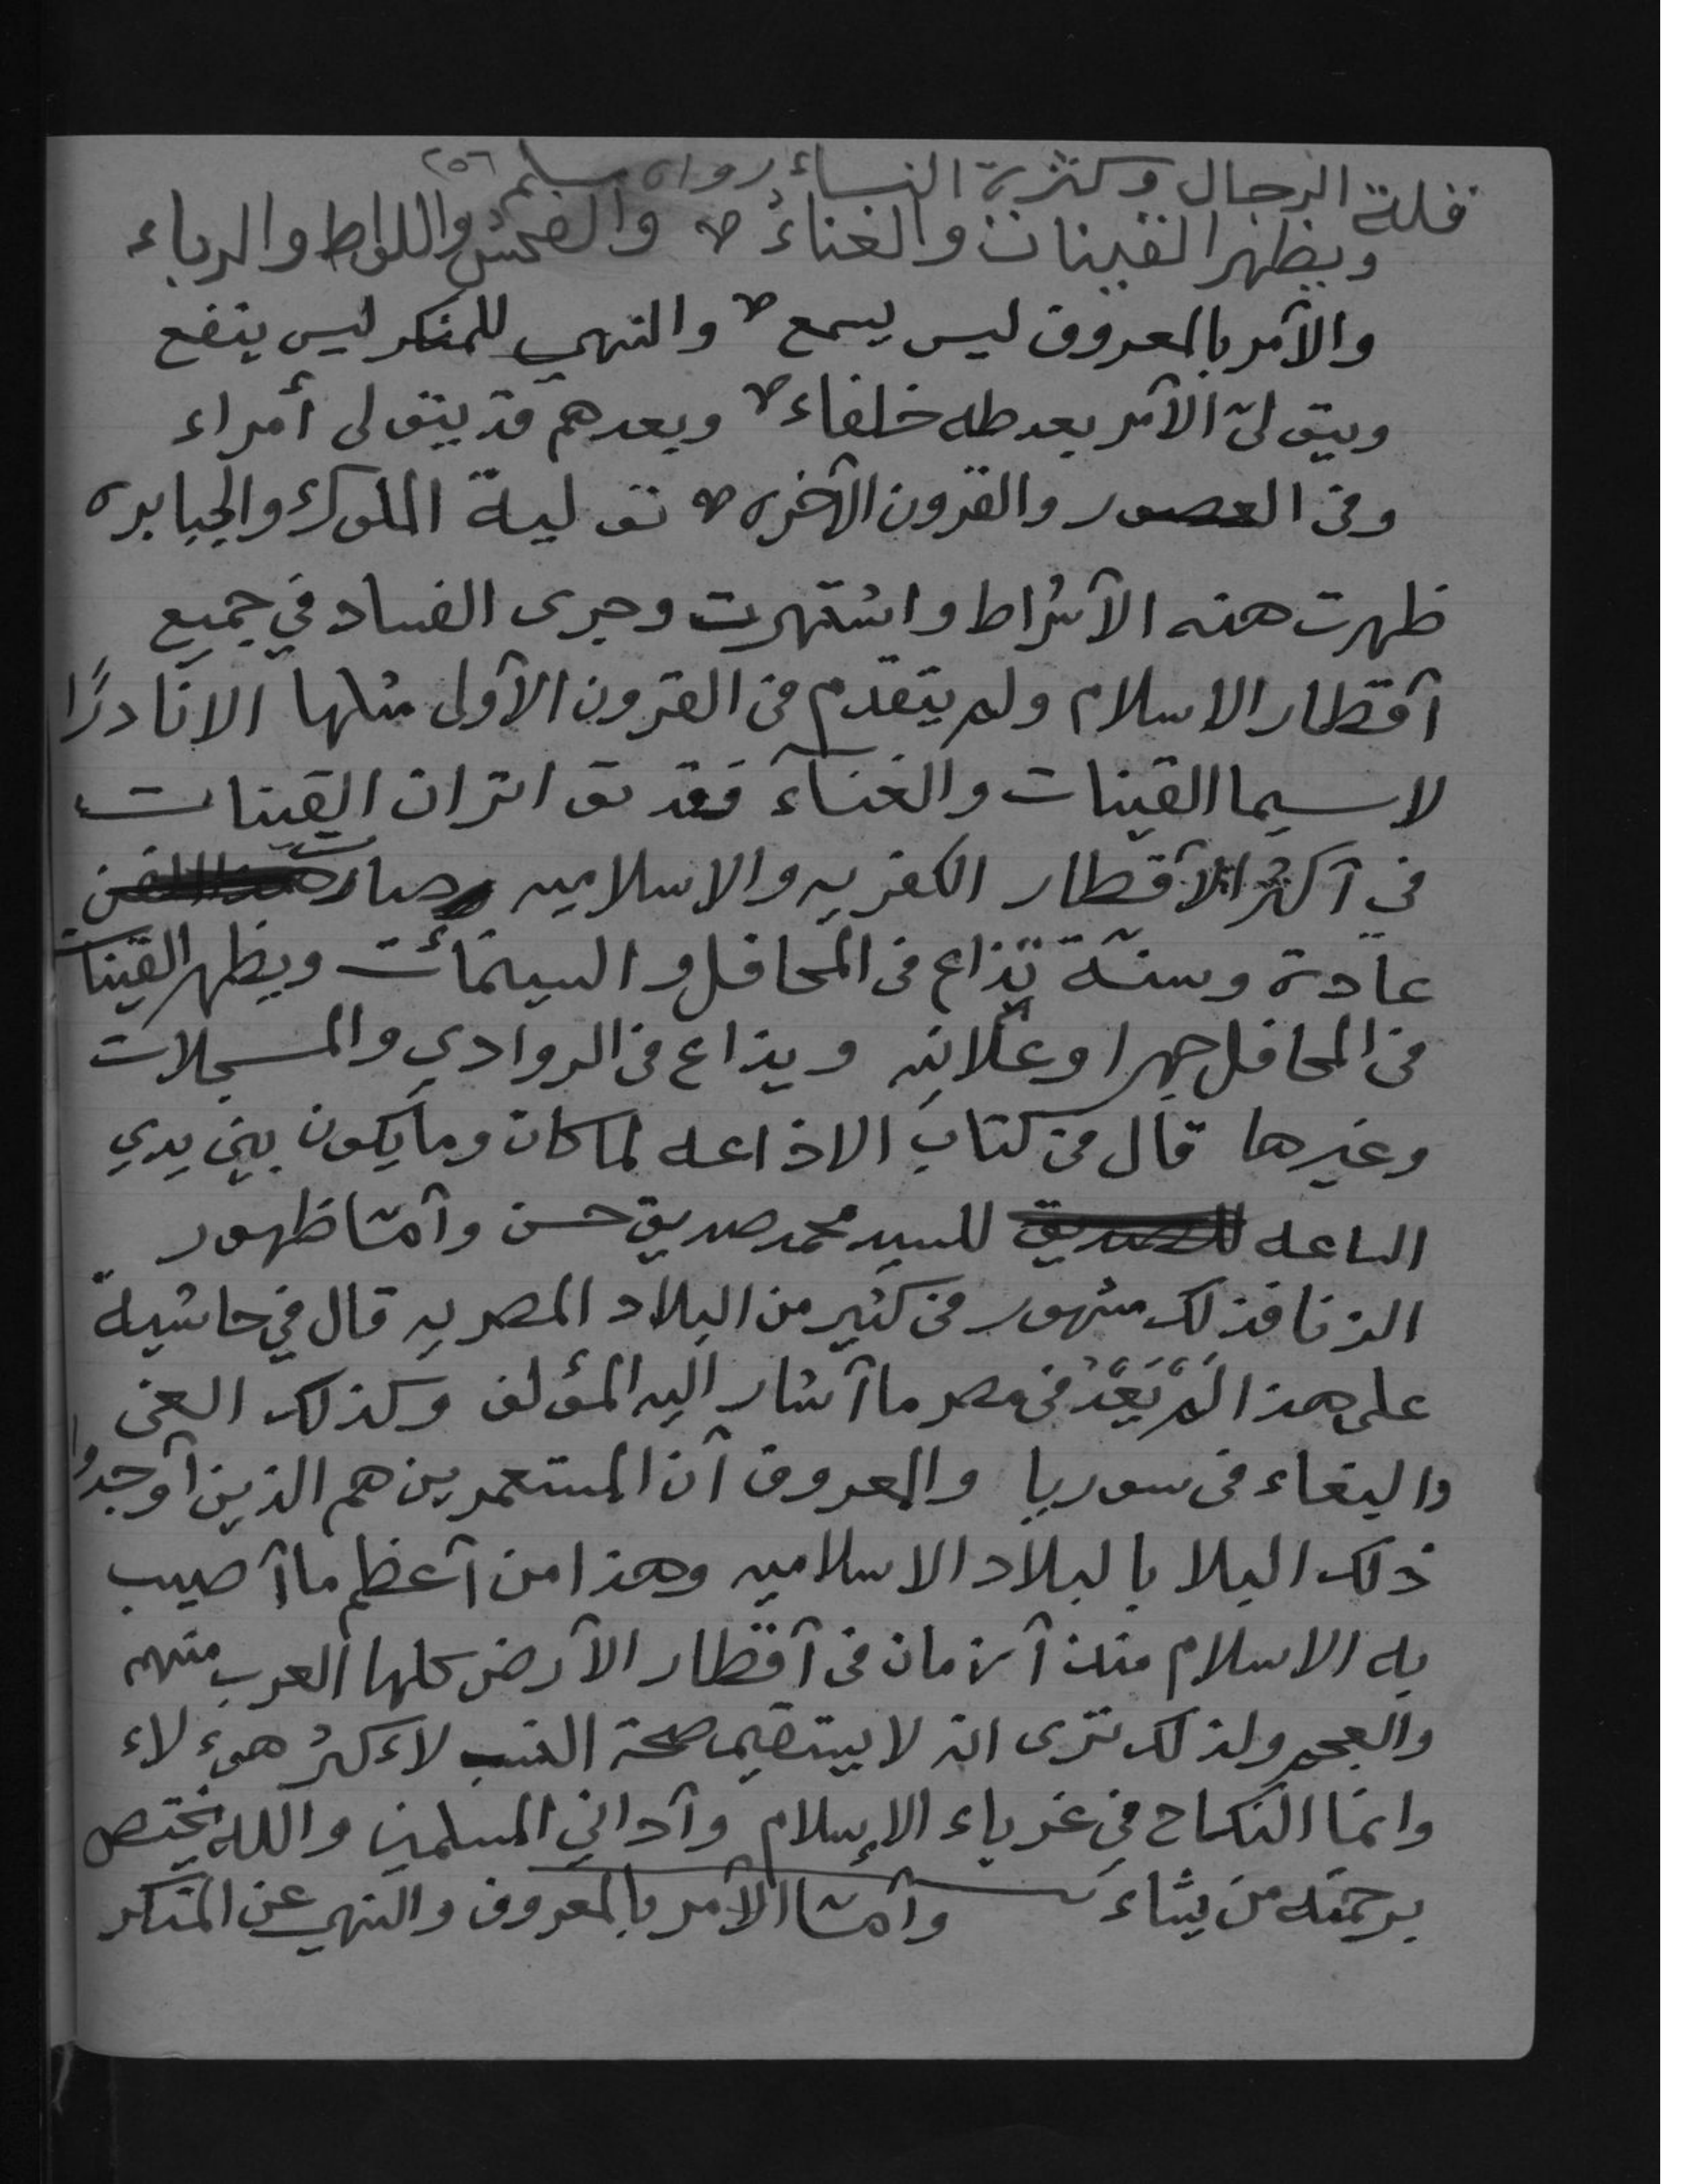 قلة الرجال وكثرة النساء رواه مسلم ٢٥٦
ويظهر القينات والغناء والفحش واللواط والرباء
والآمر بالمعروف ليس يسمع والنهي للمنكر ليس ينفع
ويتولى الآمر بعد طه خلفاء وبعدهم قد يتولى أمراء
وفي العصور والقرون الآخره تولية الملوك والجبابره
ظهرت هذه الآشراط واشتهرت وجرى الفساد في جميع
آقطار الاسلام ولم يتقدم في القرون الآولى مثلها الا نادرًا
لاسيما القينات والغناء فقد تواتران القينات
في آكثر الآقطار الكفريه والاسلاميه وصارت
عادة وسنة تذاع في المحافل والسينمائت ويظهر القينات
في المحافل جهرا وعلانيه ويذاع في الروادي والمسجلات
وغيرها قال في كتاب الاذاعه لما كان وما يكون بين يدي
الساعه للسيد محمد صديق حسن وآما ظهور
الزنا فذلك مشهور في كثير من البلاد المصريه قال في حاشية
على هذا لَمْ يَعُدْ في مصر ما آشار اليه المؤلف وكذلك الغي
والبغاء في سوريا والمعروف آن المستعمرين هم الذين آوجدوا
ذلك البلا بالبلاد الاسلاميه وهذا من آعظم ما آصيب
به الاسلام منذ آزمان في آقطار الآرض كلها العرب منهم
والعجم ولذلك ترى انه لا يستقيم صحة النسب لاءكثر هوء لاء
وانما النكاح في غرباء الإسلام وآداني المسلمين والله يختص
برحمته من يشاء وآما الآمر بالمعروف والنهي عن المنكر